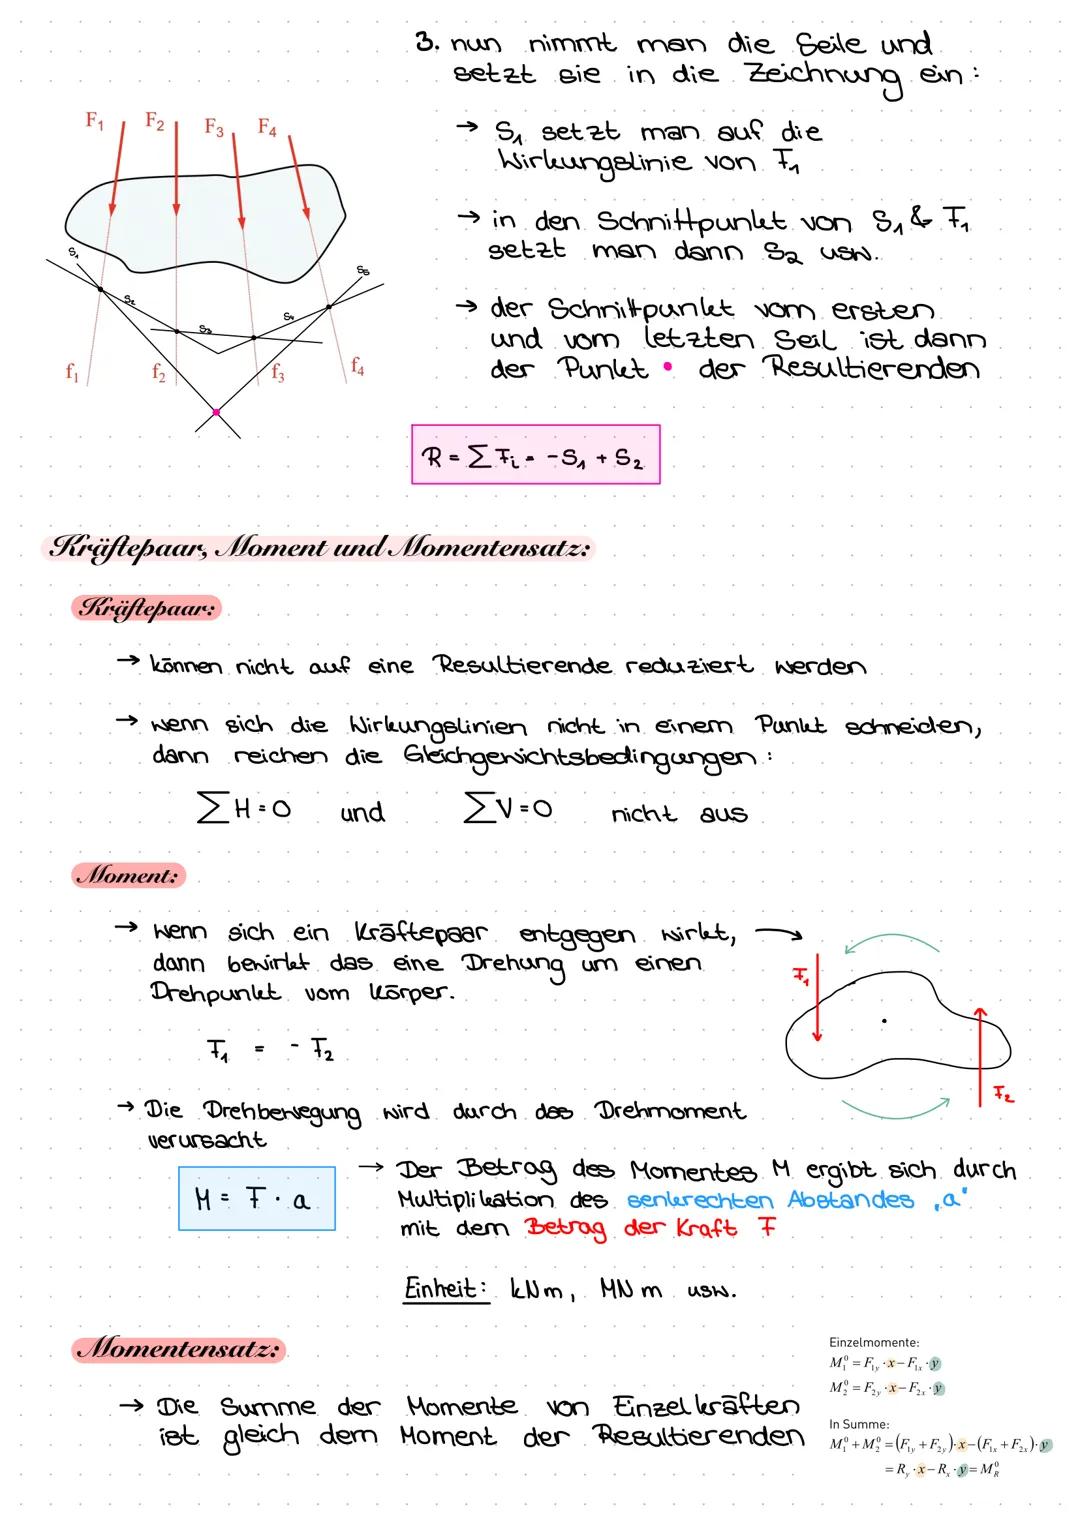 3. nun nimmt man die Seile und
setzt sie in die Zeichnung ein:
F₁ F₂ F₃ F₄
→ S₁ setzt man auf die
Wirkungslinie von F₁
→ in den Schnittpunkt von S₁ & F₁
setzt man dann S₂ usw.
S₁ S₂ S₃ S₄ S₅
→ der Schnittpunkt vom ersten
und vom letzten Seil ist dann
der Punkt • der Resultierenden
f₁ f₂ f₃ f₄
R = ∑ Fᵢ = -S₁ + S₂
Kräftepaar, Moment und Momentensatz:
Kräftepaar:
→ können nicht auf eine Resultierende reduziert werden
→ wenn sich die Wirkungslinien nicht in einem Punkt schneiden,
dann reichen die Gleichgewichtsbedingungen:
∑H=0 und ∑V=0 nicht aus
Moment:
→ wenn sich ein Kräftepaar entgegen wirkt, →
dann bewirkt das eine Drehung um einen
Drehpunkt vom Körper.
F₁
F₁ = - F₂
F₂
→ Die Drehbewegung wird durch das Drehmoment
verursacht
M = F · a
→ Der Betrag des Momentes M ergibt sich durch
Multiplikation des senkrechten Abstandes „a"
mit dem Betrag der Kraft F
Einheit: kNm, MNm usw.
Momentensatz:
→ Die Summe der Momente von Einzelkräften
ist gleich dem Moment der Resultierenden
Einzelmomente:
M₁⁰ = F₁y · x − F₁x · y
M₂⁰ = F₂y · x − F₂x · y
In Summe:
M₁⁰ + M₂⁰ = (F₁y + F₂y) · x − (F₁x + F₂x) · y
= Ry · x − Rx · y = M_R⁰